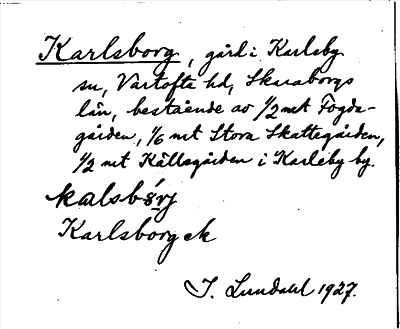 Karlsborg, gård i Karleby
sn, Vartofta hd, Skaraborgs
län, bestående av 1/2 mt Fogda-
gården, 1/6 mt Stora Skattegården,
1/2 mt Källegården i Karleby by.
Karlsborg ek
I. Lundahl 1927.